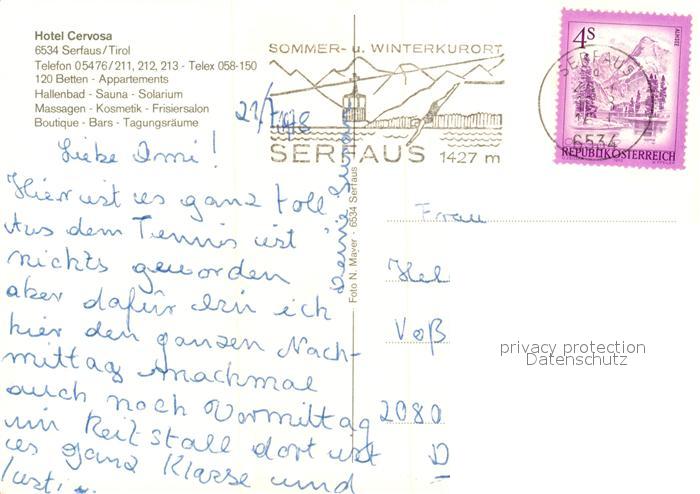 Hotel Cervosa
6534 Serfaus/Tirol
Telefon 05476/211, 212, 213 - Telex 058-150
120 Betten - Appartements
Hallenbad - Sauna - Solarium
Massagen - Kosmetik - Frisiersalon
Boutique - Bars - Tagungsräume
SOMMER- u. WINTERKURORT
SERFAUS 1427 m
4S
ALMSEE
REPUBLIK ÖSTERREICH
SERFAUS
6534
21/7 1978
Liebe Omi!
Hier ist es ganz toll
Aus dem Tennis ist
nichts geworden
aber dafür bin ich
hier den ganzen Nach-
mittag machmal
auch noch Vormittag
im Reitstall dort ist
es ganz Klasse und
lustig.
Deine
Foto N. Mayer - 6534 Serfaus
Frau
Hel
Voß
2080
D
privacy protection
Datenschutz